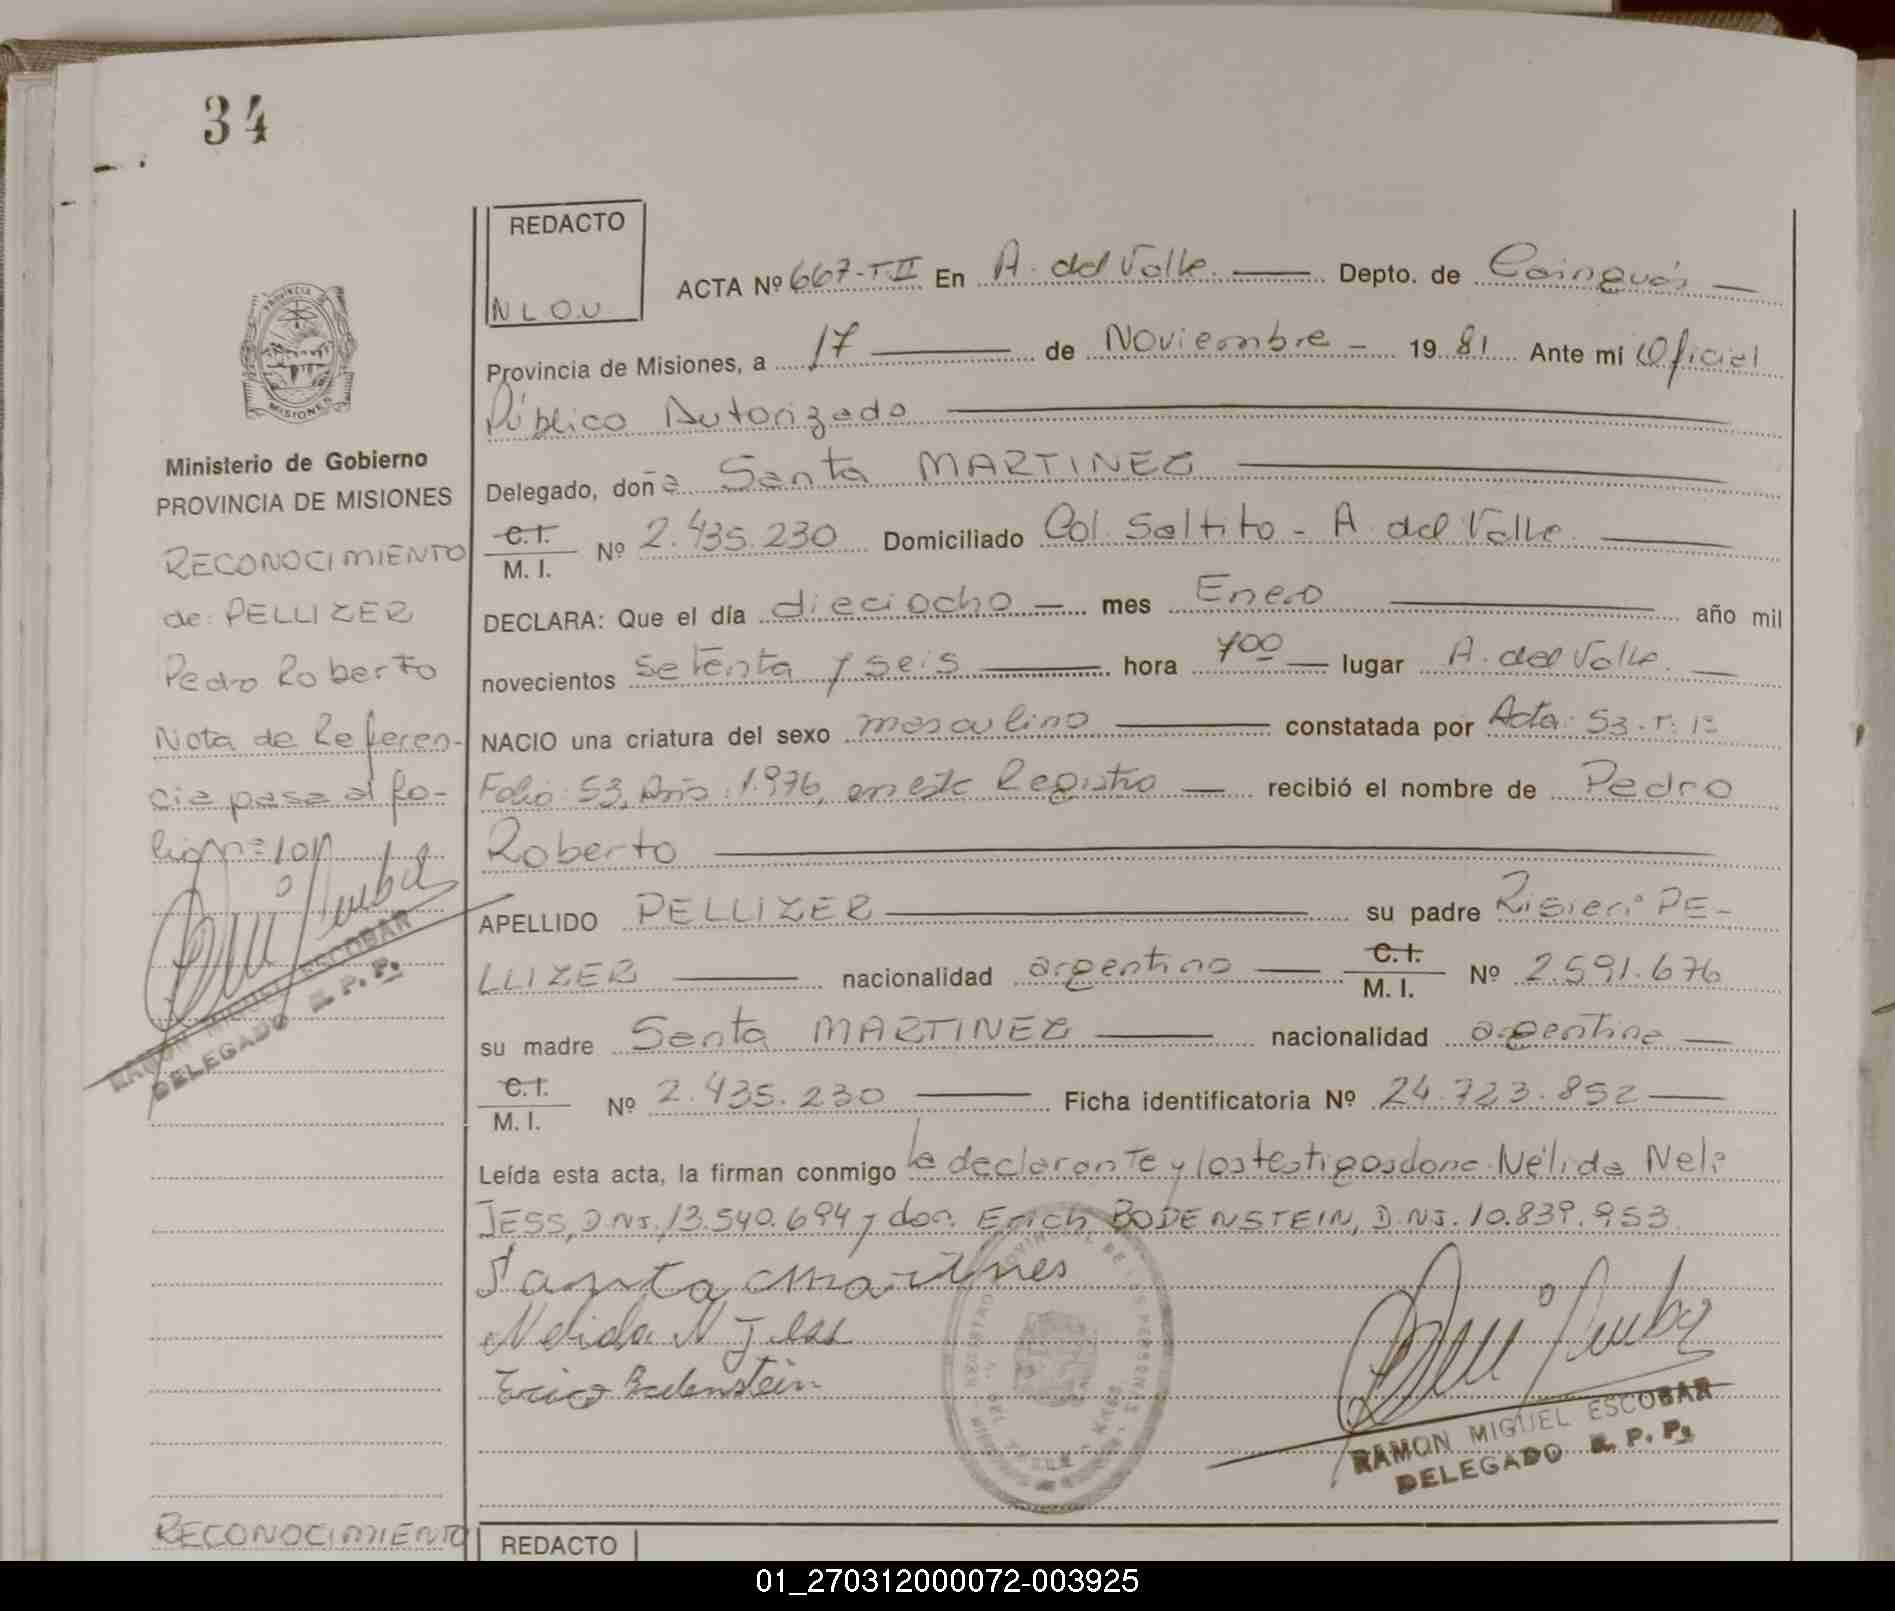 34
REDACTO
N L O U
ACTA Nº 667-T.II En A. del Valle. Depto. de Cainguás
Provincia de Misiones, a 17 de Noviembre - 19 81 Ante mi Oficial
Público Autorizado
Delegado, doña Santa MARTINEZ
C.I.
M. I. Nº 2.435.230 Domiciliado Col. Saltito - A. del Valle.
DECLARA: Que el día dieciocho mes Enero año mil
novecientos setenta y seis hora 700 lugar A. del Valle.
NACIO una criatura del sexo masculino constatada por Acta: 53. T: 1º
Folio: 53, Año: 1.976, en este Registro recibió el nombre de Pedro
Roberto
APELLIDO PELLIZER su padre Risieri PE-
LLIZER nacionalidad argentino C.I.
M. I. Nº 2.591.676
su madre Santa MARTINEZ nacionalidad argentina
C.I.
M. I. Nº 2.435.230 Ficha identificatoria Nº 24.723.852
Leída esta acta, la firman conmigo la declarante y los testigos doña Nélida Neli
JESS, D.N.I. 13.540.694 y don Erich BODENSTEIN, D.N.I. 10.839.953
Santa Martines
Nelida N Jess
Erico Bodenstein
RAMON MIGUEL ESCOBAR
DELEGADO R. P. P.
PROVINCIA
MISIONES
Ministerio de Gobierno
PROVINCIA DE MISIONES
RECONOCIMIENTO
de: PELLIZER
Pedro Roberto
Nota de Referen-
cia pasa al fo-
lio nº 101
RAMON MIGUEL ESCOBAR
DELEGADO R. P. P.
RECONOCIMIENTO
REDACTO
01_270312000072-003925